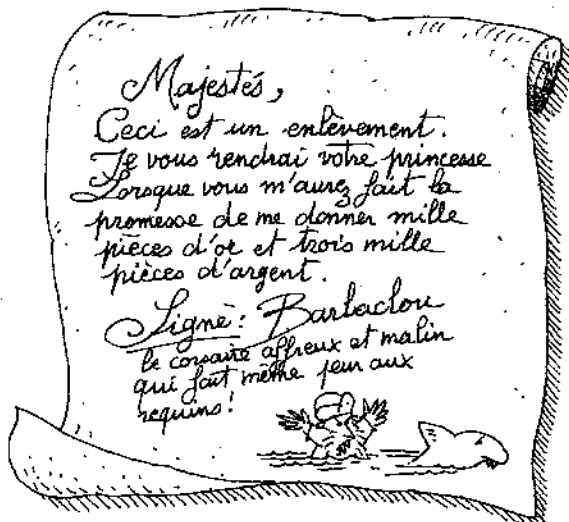 Majestés,
Ceci est un enlèvement.
Je vous rendrai votre princesse
Lorsque vous m'aurez fait la
promesse de me donner mille
pièces d'or et trois mille
pièces d'argent.
Signé : Barbaclou
le corsaire affreux et malin
qui fait même peur aux
requins !